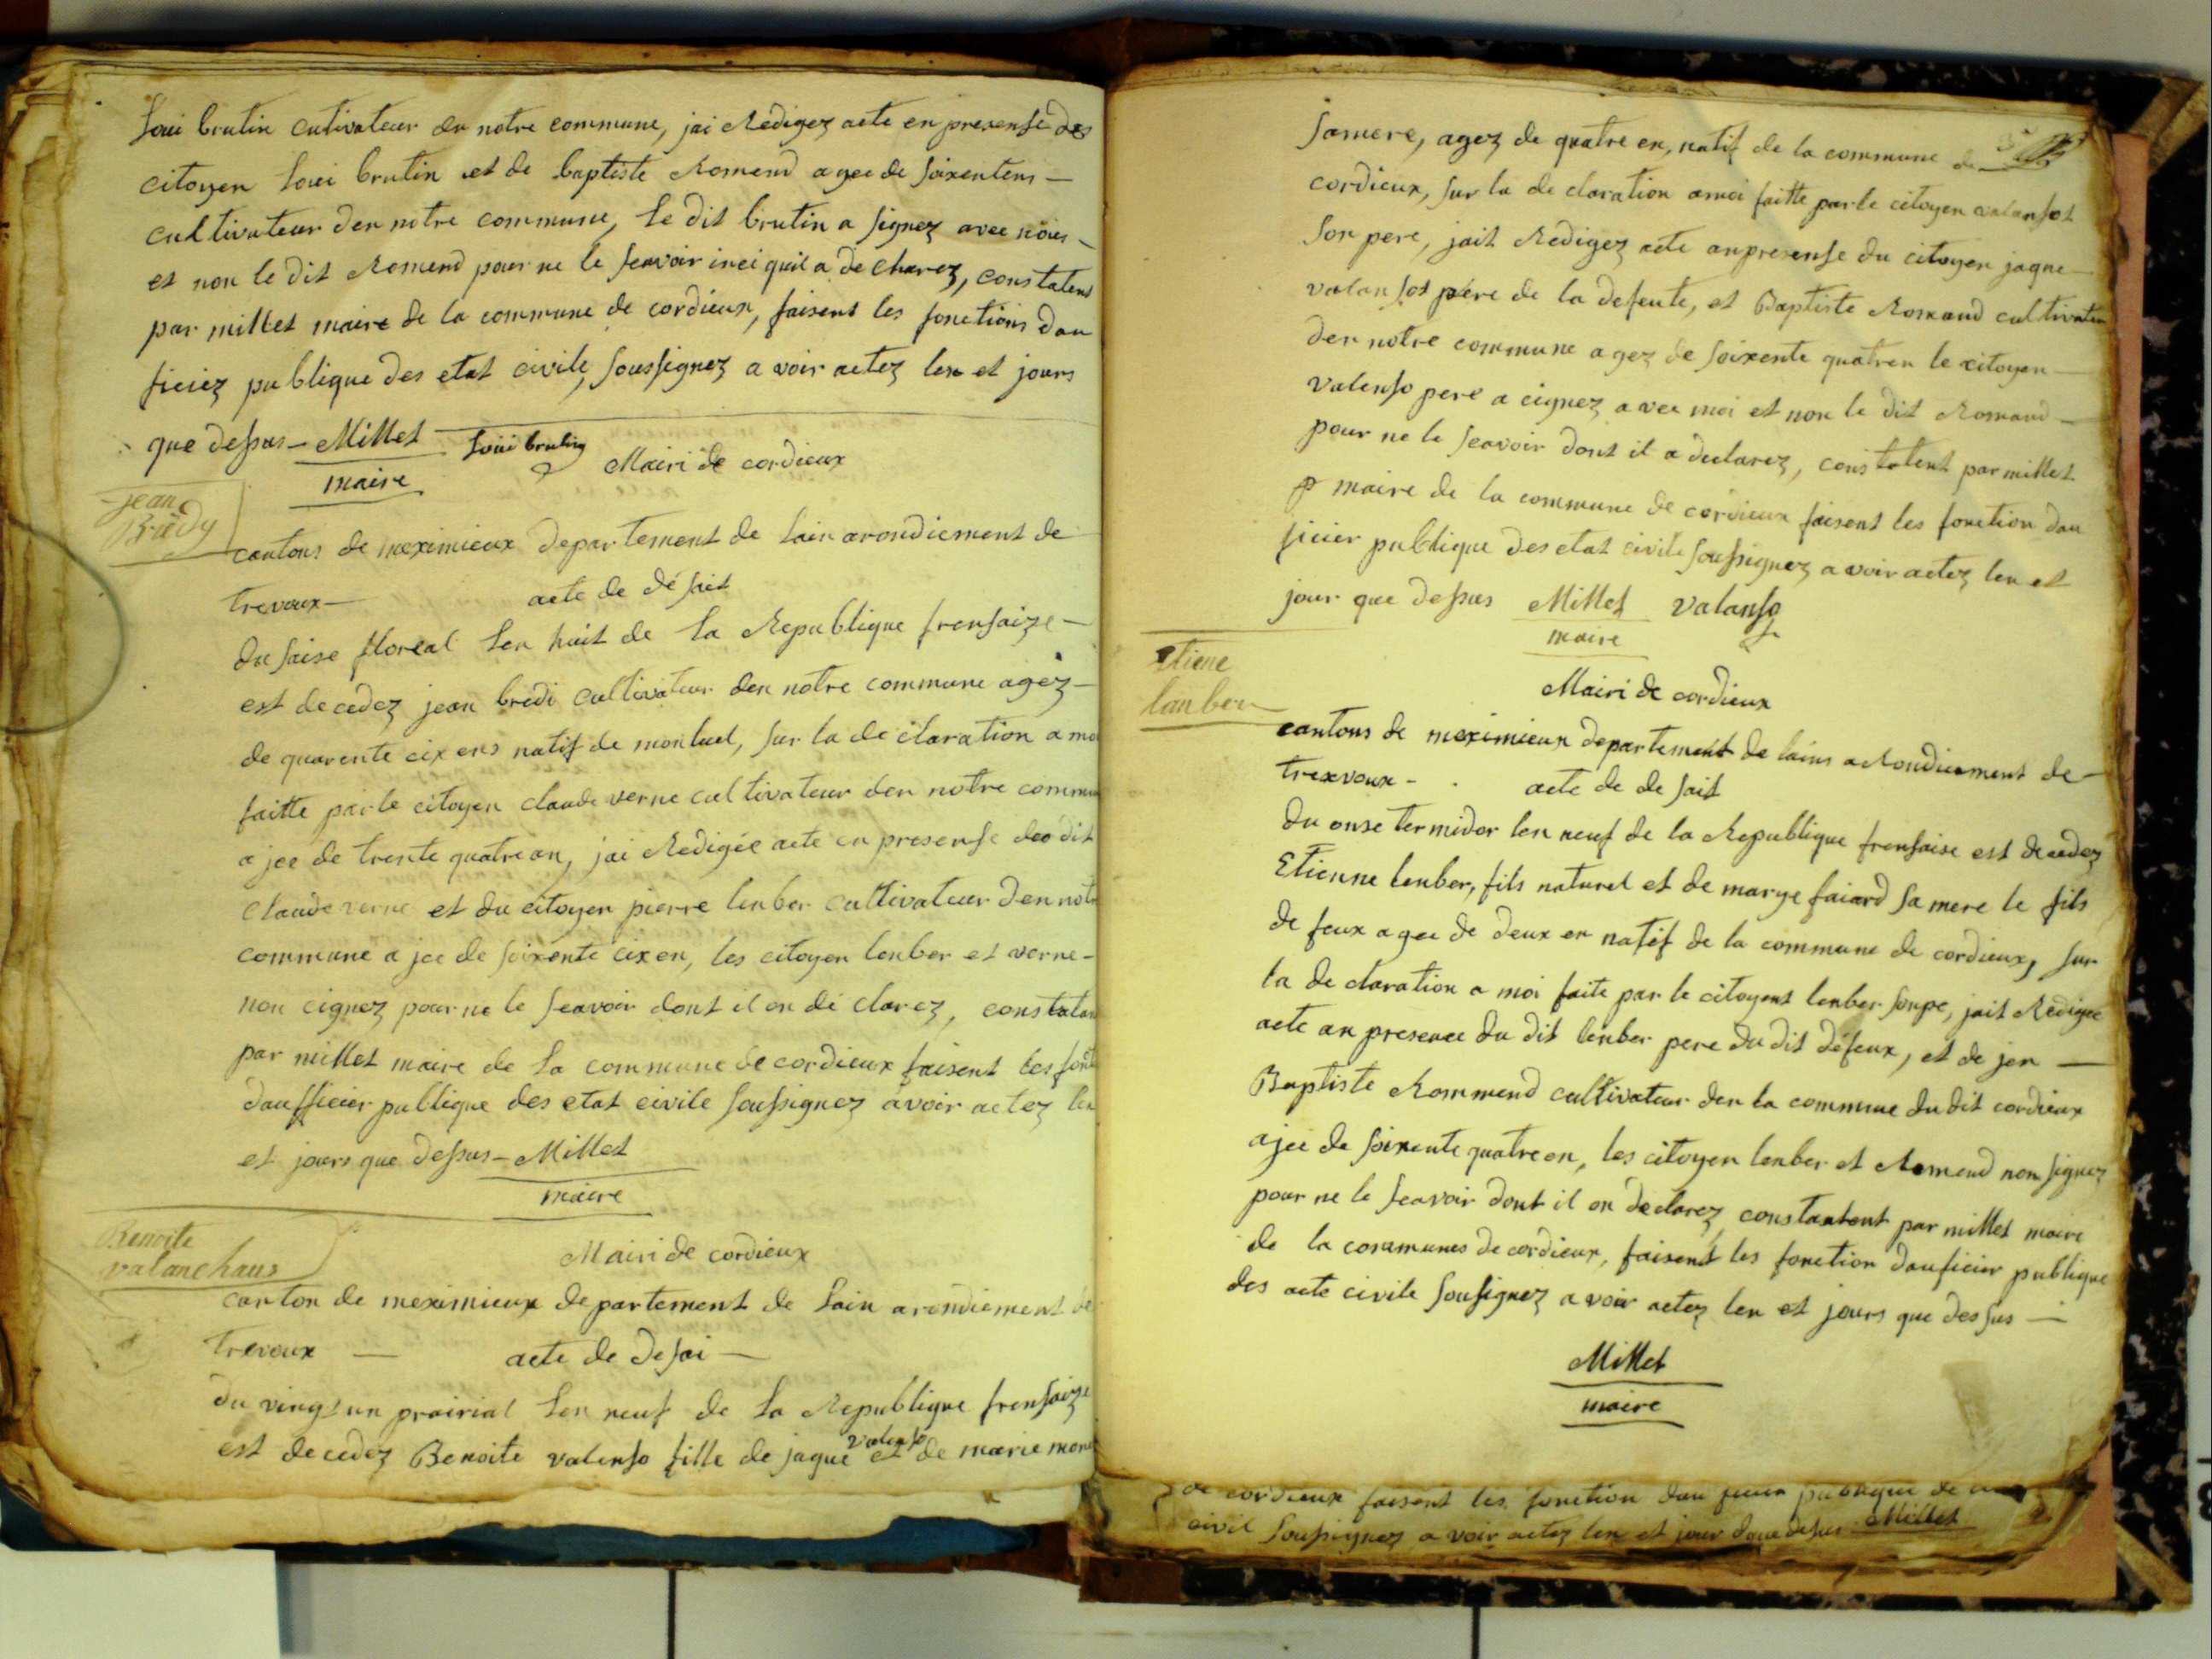 Loui brutin cutivateur de notre commune, jai Redigez acte en presense des
citoyen Loui brutin et de baptiste Romend agee de soixentens —
cultivateur den notre commune, le dit brutin a signez avec nous —
et non le dit Romend pour ne le scavoir inci quil a de charez, constatent
par millet maire de la commune de cordieux, faisent les fonctions dau
ficiez publique des etat civile, soussignez a voir actez len et jours
que dessus — Millet Loui brutin
maire
Mairi de cordieux
jean
Brédy
cantons de meximieux departement de Lain arondicment de
trevoux — acte de désait
du saise floreal Len huit de La Republique frensaize —
est decedez jean bredi cultivateur den notre commune agez —
de quarente cix ens natif de monluel, sur la de claration a mo
faitte par le citoyen claude verne cultivateur den notre commu
a jee de trente quatre an, jai Redigée acte en presense deo dit
Claude verne et du citoyen pierre lenber cultivateur den notr
commune a jee de soixente cix en, les citoyen lenber et verne —
non cignez pour ne le scavoir dont il on dé clarez, constatan
par millet maire de La commune de cordieux faisent les fonct
daufficier publique des etat civile soussignez avoir actez len
et jours que dessus — Millet
maire
Benoite
valanchaus
Mairi de cordieux
canton de meximieux departement de Lain arondiement de
trevoux — acte de desai —
du vingt un prairial Len neuf de La Republique frensaize
valenso
est decedez Benoite valenso fille de jaque et de marie mon
samere, agez de quatre en, natif de la commune de
cordieux, sur la de claration amoi faitte par le citoyen valansot
son pere, jait Redigez acte anpresense du citoyen jaque —
valansot pére de la defente, et Baptiste Romand cultivateu
den notre commune agez de soixente quatren le citoyen —
valenso pere a cignez avec moi et non le dit Romand —
pour ne le scavoir dont il a declarez, constatent par millet
p maire de la commune de cordieux faisent les fonction dau
ficier publique des etat civile soussignez a voir actez len et
jour que dessus Millet valanso
maire
Etiene
lanber
Mairi de cordieux
cantons de meximieux departement de lains aRondicement de —
trexvoux — acte de de sait
du onse termidor len neuf de la Republique frensaise est decedez
Etienne lenber, fils naturel et de marye faiard sa mere le fils
de feux agee de deux en natif de la commune de cordieux, sur
la de claration a moi faite par le citoyent lenber sonpe, jait Redigee
acte an presence du dit lenber pere du dit défeux, et de jen —
Baptiste Rommend cultivateur den la commune du dit cordieux
ajee de soixente quatre en, les citoyen lenber et Romend non signez
pour ne le scavoir dont il on declarez constatent par millet maire
de la communes de cordieux, faisent les fonction dauficier publique
des acte civile sousignez a voir actez len et jours que dessus —
Millet
maire
de cordieux faisent les fonction dau ficier publique de
civil soussignez a voir actez len et jour dessus Millet